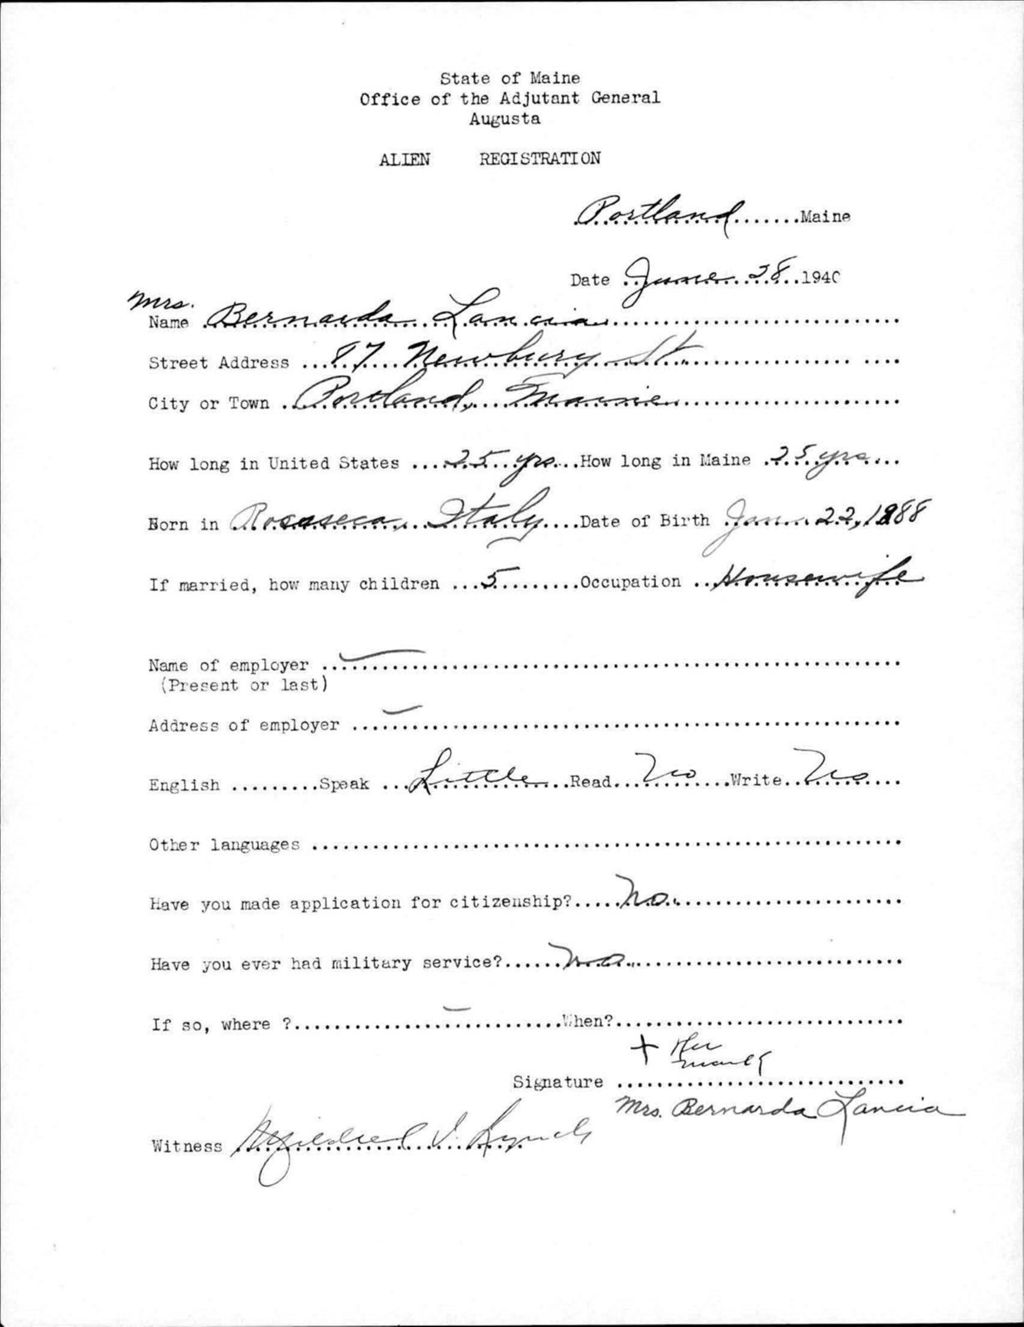 State of Maine
Office of the Adjutant General
Augusta
ALIEN REGISTRATION
Portland.......Maine
Date June 28..1940
Mrs.
Name Bernarda Lancia
Street Address 87 Newbury St.
City or Town Portland, Maine
How long in United States 25 yrs...How long in Maine 25 yrs
Born in Rocaseca, Italy....Date of Birth Jan. 22, 1888
If married, how many children ...5.........Occupation Housewife
Name of employer —
(Present or last)
Address of employer —
English .........Speak ...Little...Read....No.....Write..No
Other languages
Have you made application for citizenship?.....No.
Have you ever had military service?......No.
If so, where ? — When?
+ Her
mark
Signature
Mrs. Bernarda Lancia
Witness Mildred I. Lynch